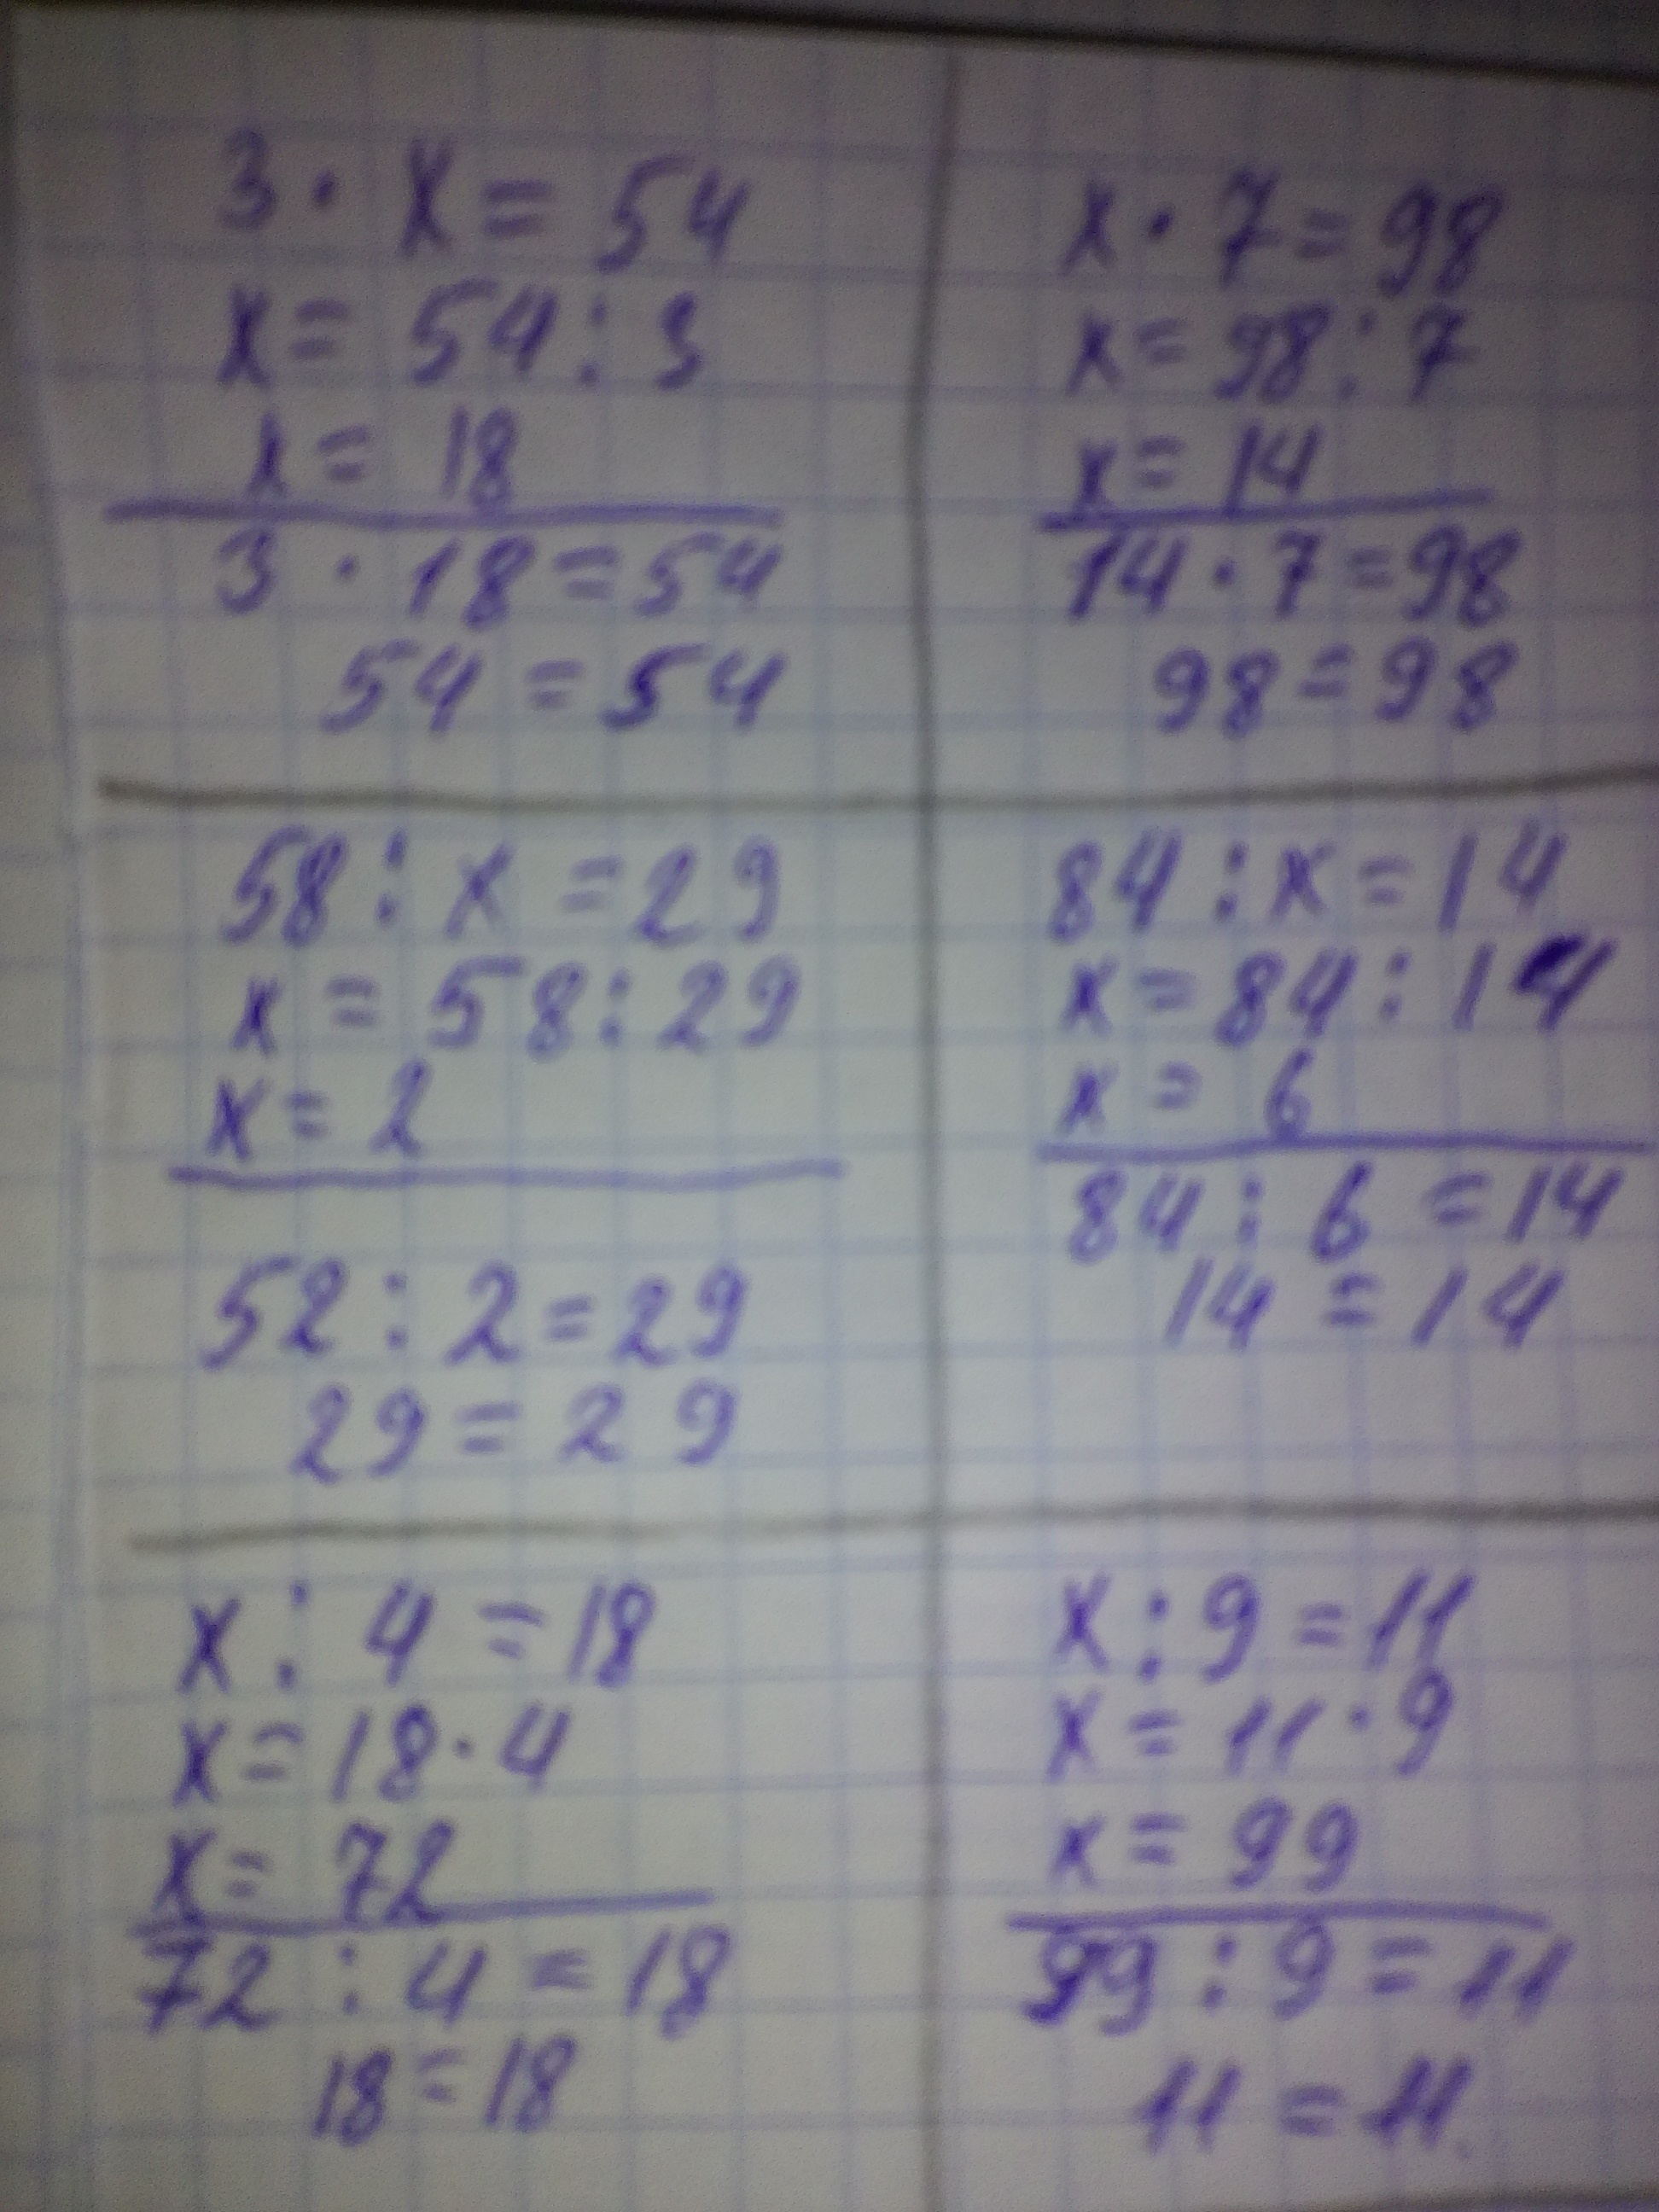 3 · x = 54
x = 54 : 3
x = 18
3 · 18 = 54
54 = 54
x · 7 = 98
x = 98 : 7
x = 14
14 · 7 = 98
98 = 98
58 : x = 29
x = 58 : 29
x = 2
52 : 2 = 29
29 = 29
84 : x = 14
x = 84 : 14
x = 6
84 : 6 = 14
14 = 14
x : 4 = 18
x = 18 · 4
x = 72
72 : 4 = 18
18 = 18
x : 9 = 11
x = 11 · 9
x = 99
99 : 9 = 11
11 = 11